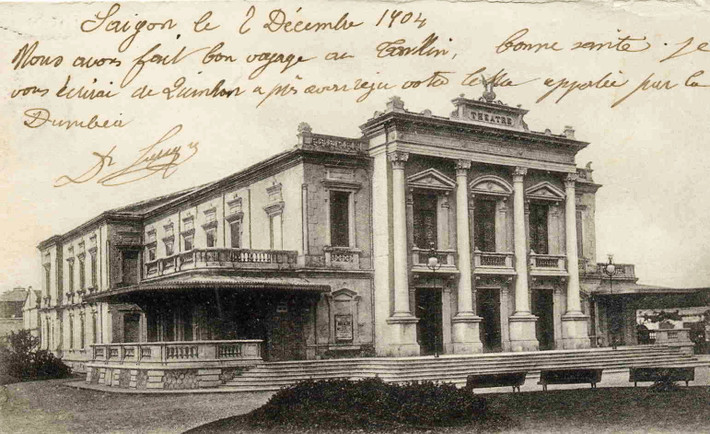 Saigon le 2 Décembre 1904
Nous avons fait bon voyage au bonne santé. je
vous écrirai de Quinhon après avoir reçu votre lettre apportée par la
Dumbéa
Dr
THEATRE